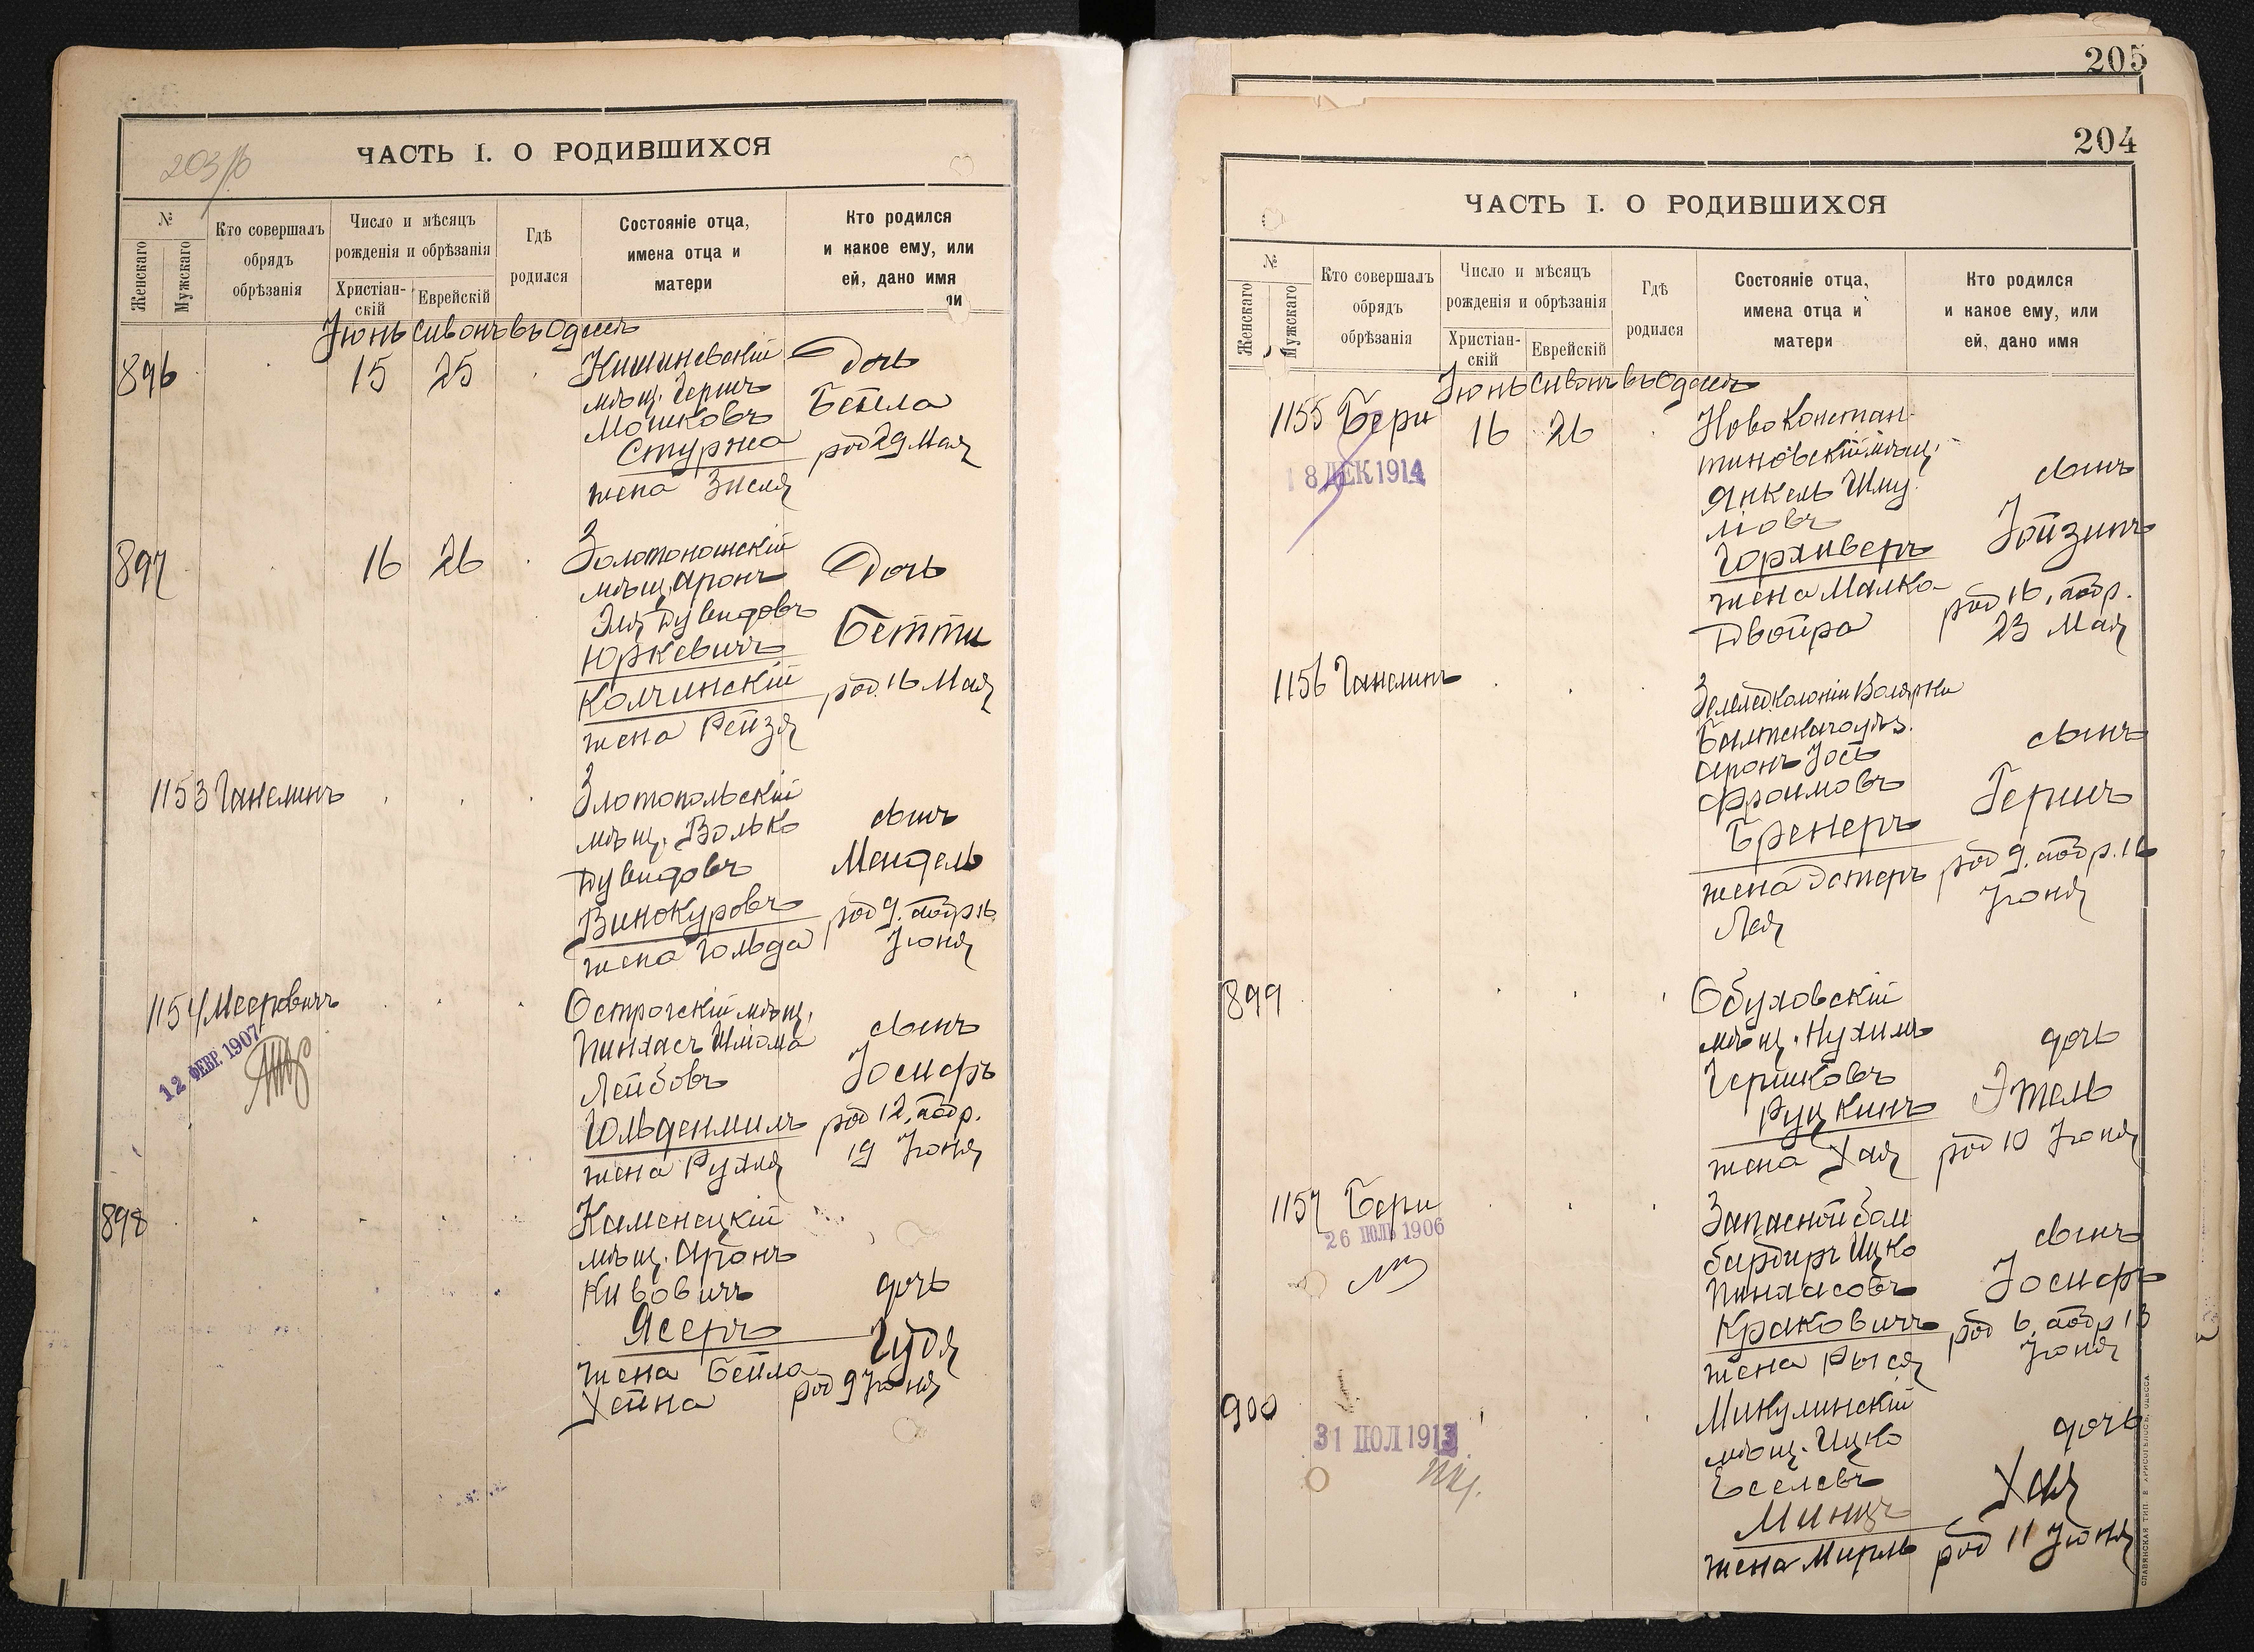 203/б
ЧАСТЬ I. О РОДИВШИХСЯ
№
Женскаго
Мужскаго
Кто совершалъ
обрядъ
обрѣзанія
Число и мѣсяцъ
рожденія и обрѣзанія
Христіан-
скій
Еврейскій
Гдѣ
родился
Состояніе отца,
имена отца и
матери
Кто родился
и какое ему, или
ей, дано имя
ли
Іюнь Сивонъ въ Одессѣ
896
15 25
Кишиневскій
мѣщ. Гершъ
Мошковъ
Стуржа
жена Зисля
Дочь
Бейла
род 29 Мая
897
16 26
Золотоношскій
мѣщ. Аронъ
Эля Дувидовъ
Юркевичъ
Колчинскій
жена Рейзя
Дочь
Бетти
род. 16 Мая
1153 Ганелинъ
Златопольскій
мѣщ. Волько
Дувидовъ
Винокуровъ
жена Гольда
сынъ
Мендель
род 9. аобр 16
Іюня
1154 Мееровичъ
12 ФЕВР. 1907
Острогскій мѣщ.
Пинхасъ Шлома
Лейбовъ
Гольденмилъ
жена Рухля
сынъ
Іосифъ
род 12, аобр.
19 Іюня
898
Каменецкій
мѣщ. Аронъ
Кивовичъ
Ясеръ
жена Бейла
Хейна
дочь
Гудя
род 9 Іюня
205
204
ЧАСТЬ I. О РОДИВШИХСЯ
№
Женскаго
Мужскаго
Кто совершалъ
обрядъ
обрѣзанія
Число и мѣсяцъ
рожденія и обрѣзанія
Христіан-
скій
Еврейскій
Гдѣ
родился
Состояніе отца,
имена отца и
матери
Кто родился
и какое ему, или
ей, дано имя
Іюнь Сивонъ въ Одессѣ
1155 Бери
18 ДЕК 1914
16 26
Ново Констан-
тиновскій мѣщ.
Янкель Шму
ліовъ
Горливеръ
жена Малка
Двойра
сынъ
Іойзипъ
род 16, аобр.
23 Мая
1156 Ганелинъ
Землед. колоніи Волярка
Балтскаго уѣз.
Аронъ Іось
Фроимовъ
Бренеръ
жена Эстеръ
Лея
сынъ
Гершъ
род 9. аобр. 16
Іюня
899
Обуховскій
мѣщ. Нухимъ
Гершковъ
Руцкинъ
жена Хая
дочь
Этель
род 10 Іюня
1157 Бери
26 ІЮЛЬ 1906
Запасной бом
бардиръ Ицко
Пинхасовъ
Краковичъ
жена Рыся
сынъ
Іосифъ
род 6, аобр 13
Іюня
900
31 ІЮЛ 1913
Микулинскій
мѣщ. Ицко
Еселевъ
Минцъ
жена Мирль
дочь
Хая
род 11 Іюня
СЛАВЯНСКАЯ ТИП. Е. ХРИСОГЕЛОСЪ, ОДЕССА.